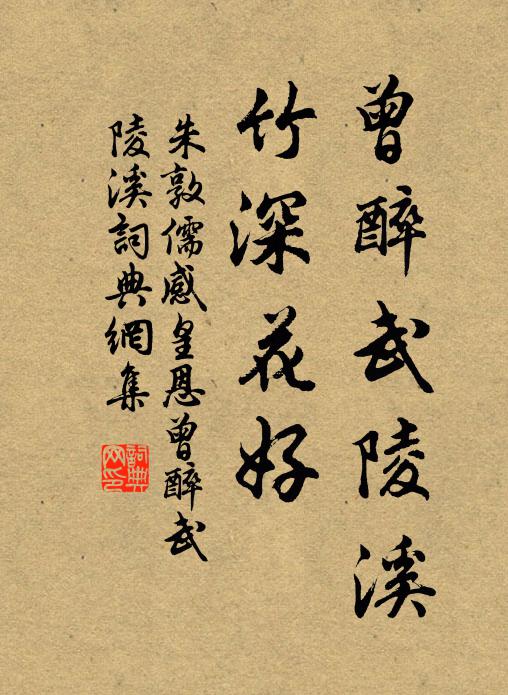 曾醉武陵溪
竹深花好
朱敦儒感皇恩曾醉武
陵溪詞典網集
詞典网印